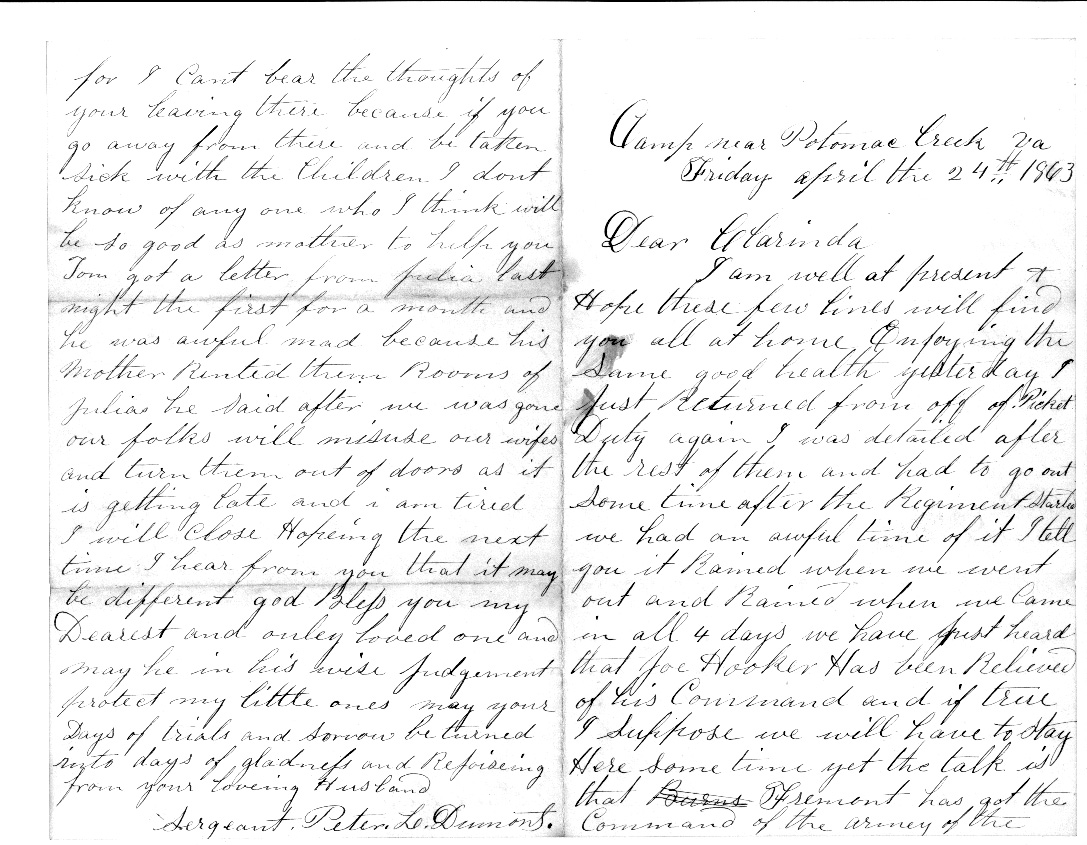 Camp near Potomac Creek Va
Friday april the 24th 1863
Dear Clarinda
I am well at present &
Hope these few lines will find
you all at home Enjoying the
Same good health yesterday I
just Returned from off of Picket
Duty again I was detailed after
the rest of them and had to go out
Some time after the Regiment Started
we had an awful time of it I tell
you it Rained when we went
out and Rained when we Came
in all 4 days we have just heard
that Joe Hooker Has been Relieved
of his Command and if true
I suppose we will have to stay
Here some time yet the talk is
that Burns Fremont has got the
Command of the armey of the
for I Cant bear the thoughts of
your leaving there because if you
go away from there and be taken
sick with the Children I dont
know of any one who I think will
be so good as mother to help you
Tom got a letter from Julia last
night the first for a month and
he was awful mad because his
Mother Rented them Rooms of
Julias he said after we was gone
our folks will misuse our wifes
and turn them out of doors as it
is getting late and i am tired
I will Close Hopeing the next
time I hear from you that it may
be different god Bless you my
Dearest and onley loved one and
may he in his wise Judgement
protect my little ones may your
Days of trials and sorrow be turned
into days of gladness and Rejoiseing
from your loveing Husband
Sergeant. Peter. L. Dumont.